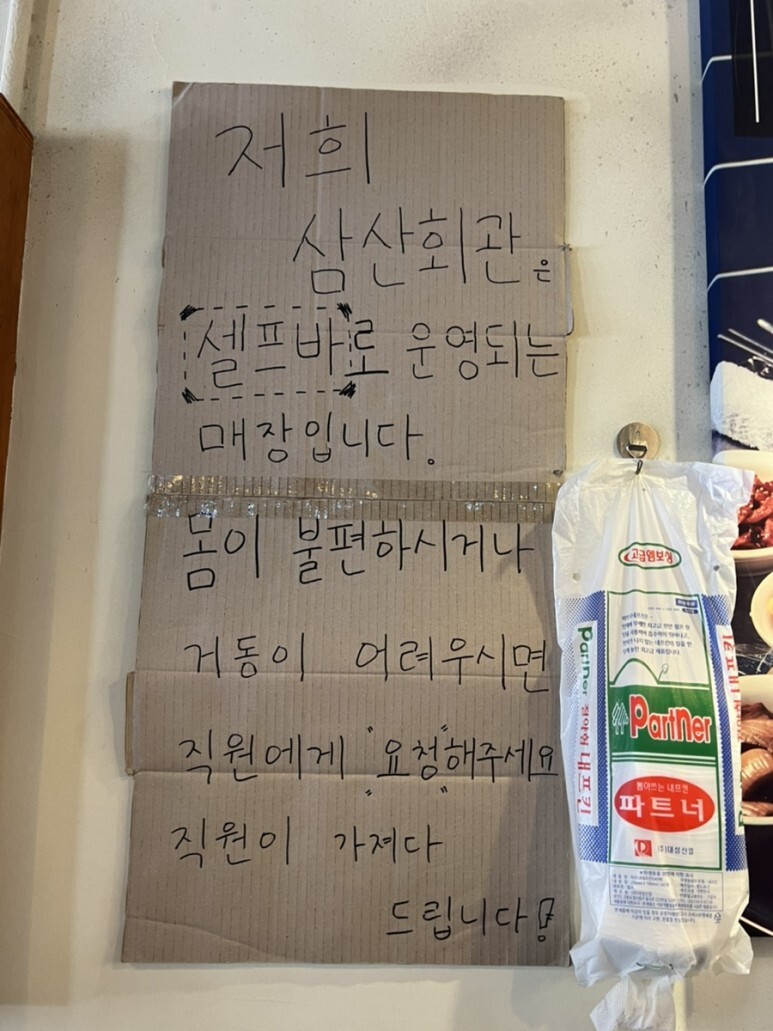 저희
삼산회관은
셀프바로 운영되는
매장입니다.
몸이 불편하시거나
거동이 어려우시면
직원에게 "요청"해주세요
직원이 가져다
드립니다!
고급엠보싱
Partner
뽑아쓰는 내프킨
파트너
(주)대성산업
Partner
내프킨